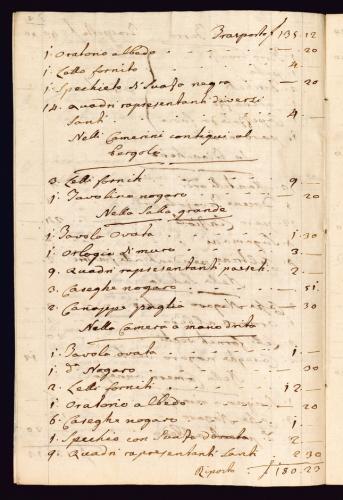 Trasporto £ 135. 12
1. Oratorio albedo . . . — . 20
1. Letto fornito . . . 4. —
1. Spechieto di Suaso negro . — . 20
14. Quadri rapresentanti diversi
Santi . . . 4. —
Nelli Camerini contigui al
Pergolo
3. Letti forniti . . . 9. —
1. Tavolino nogaro . . . — 20
Nella Salla grande
1. Tavola ovata . . . 1. 30
1. Orlogio di muro . . . 3. —
9. Quadri rapresentanti paesh. 2. —
3. Careghe nogaro . . . — 51.
2. Canappe paglia . . . — 30
Nella Camera a mano drita
1. Tavola ovata . . . 1. —
1. d.ª Nogaro . . . — 30
2. Letti forniti . . . 12 —
1. Oratorio albedo . . . — 20
6. Careghe nogaro . . . 1. —
1. Spechio con Suaso dorata . 2. —
9. Quadri rapresentanti Santi 2 30
Riporto £ 180. 23